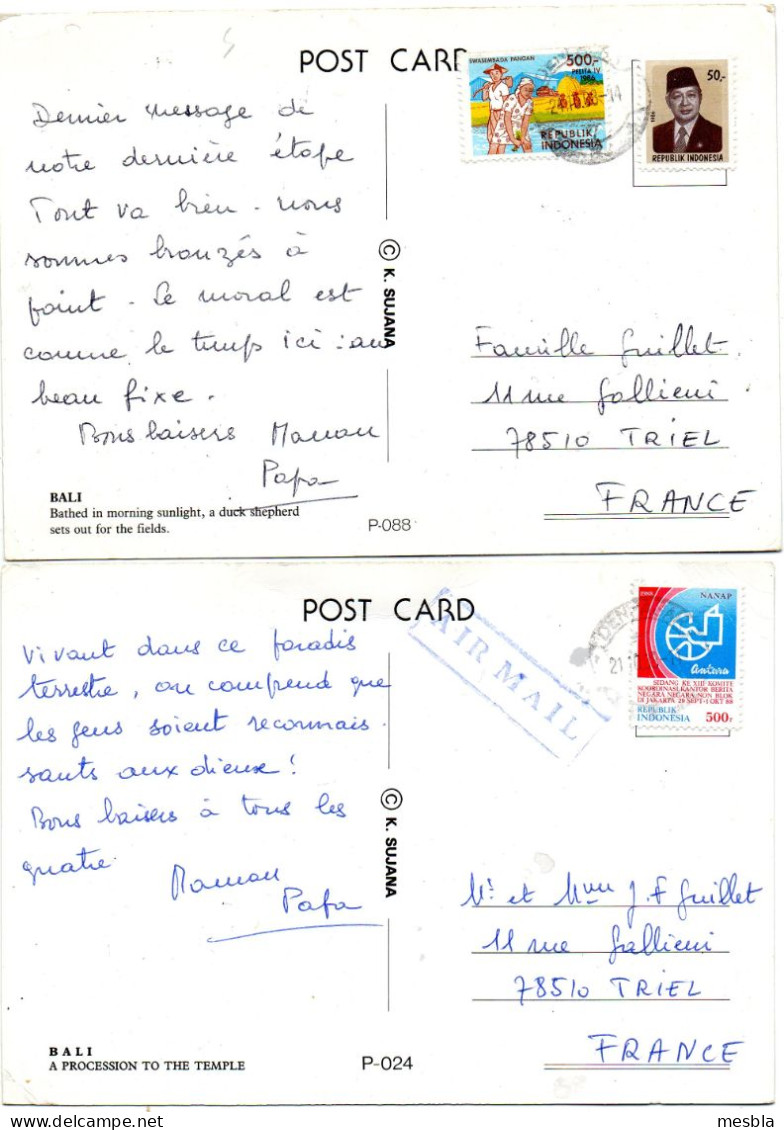 POST CARD
SWASEMBADA PANGAN
500,-
PELITA IV
1986
REPUBLIK
INDONESIA
50,-
REPUBLIK INDONESIA
Dernier message de
notre dernière étape
Tout va bien - nous
sommes bronzés à
point - Le moral est
comme le temps ici : au
beau fixe.
Bons baisers Maman
Papa
© K. SUJANA
Famille Guillet
11 rue Gallieni
78510 TRIEL
FRANCE
BALI
Bathed in morning sunlight, a duck shepherd
sets out for the fields.
P-088
POST CARD
AIR MAIL
NANAP
antara
SIDANG KE XIII KOMITE
KOORDINASI KANTOR BERITA
NEGARA NEGARA NON BLOK
DI JAKARTA 28 SEPT-1 OKT 88
REPUBLIK
INDONESIA 500,-
Vivant dans ce paradis
terrestre, on comprend que
les gens soient reconnais-
sants aux dieux !
Bons baisers à tous les
quatre
Maman
Papa
© K. SUJANA
Mr et Mme J.F Guillet
11 rue Gallieni
78510 TRIEL
FRANCE
BALI
A PROCESSION TO THE TEMPLE
P-024
mesbla